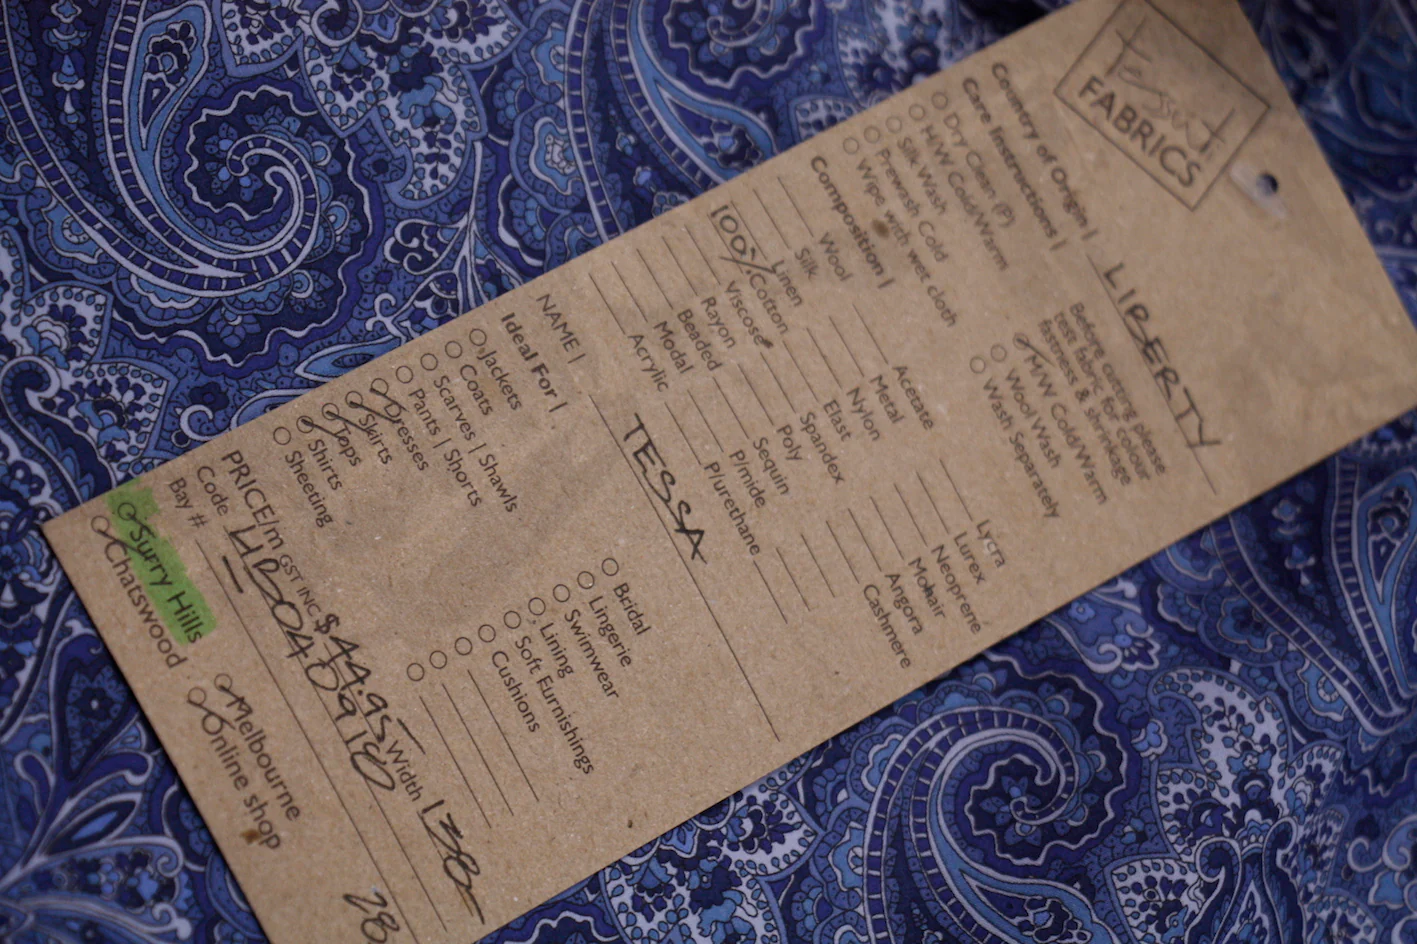 Tessuti
FABRICS
Country of Origin | LIBERTY
Care Instructions |
Dry Clean (P)
H/W Cold/Warm
Silk Wash
Prewash Cold
Wipe with wet cloth
Before cutting please
test fabric for colour
fastness & shrinkage
M/W Cold/Warm
Wool Wash
Wash Separately
Composition |
Wool
Silk
Linen
100% Cotton
Viscose
Rayon
Beaded
Modal
Acrylic
Acetate
Metal
Nylon
Elast
Spandex
Poly
Sequin
P/mide
P/urethane
Lycra
Lurex
Neoprene
Mohair
Angora
Cashmere
NAME | TESSA
Ideal For |
Jackets
Coats
Scarves | Shawls
Pants | Shorts
Dresses
Skirts
Tops
Shirts
Sheeting
Bridal
Lingerie
Swimwear
Lining
Soft Furnishings
Cushions
PRICE/m GST INC $44.95 Width 138
Code LIB0409180
Bay # 28
Surry Hills
Chatswood
Melbourne
Online shop